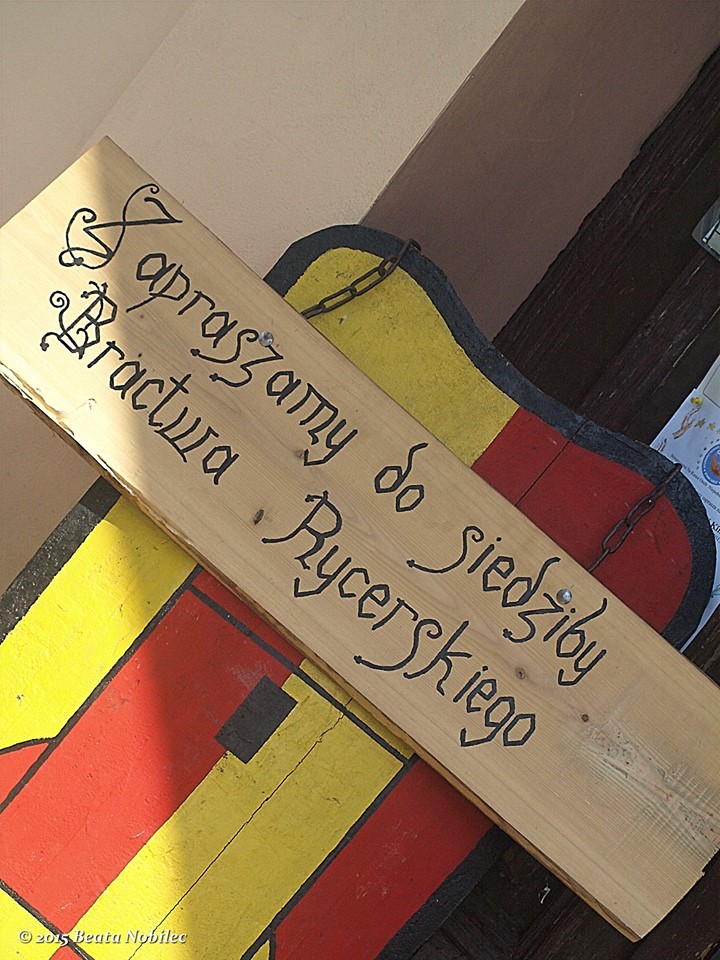 Zapraszamy do siedziby
Bractwa Rycerskiego
© 2015 Beata Nobilec